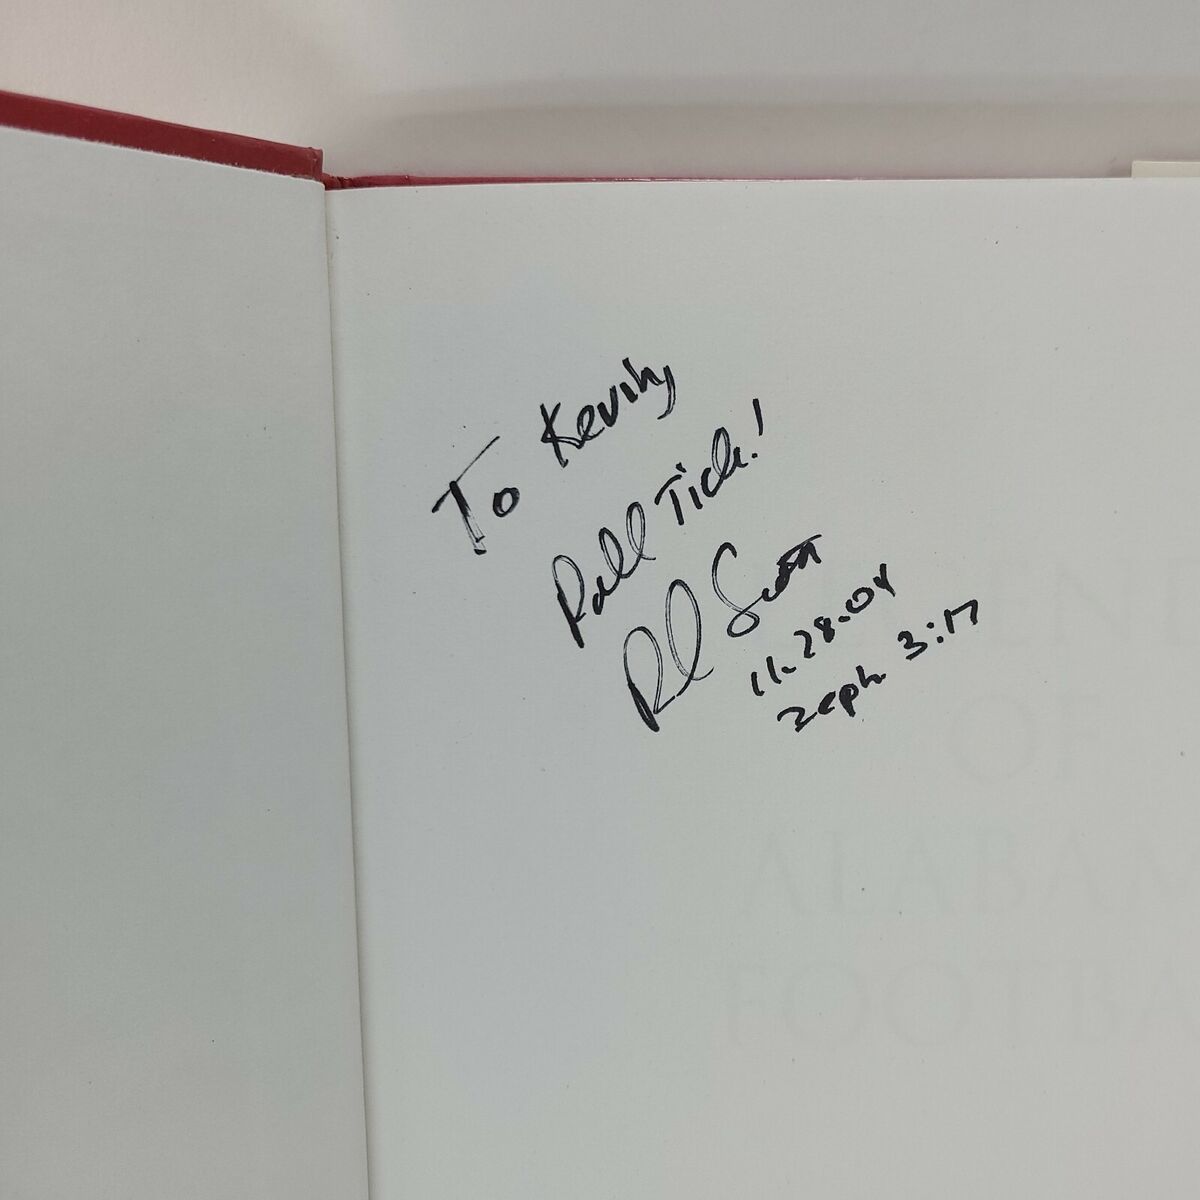 To Kevin,
Roll Tide!
Scott
11.28.04
Zeph 3:17
OF
ALABAM
FOOTBA